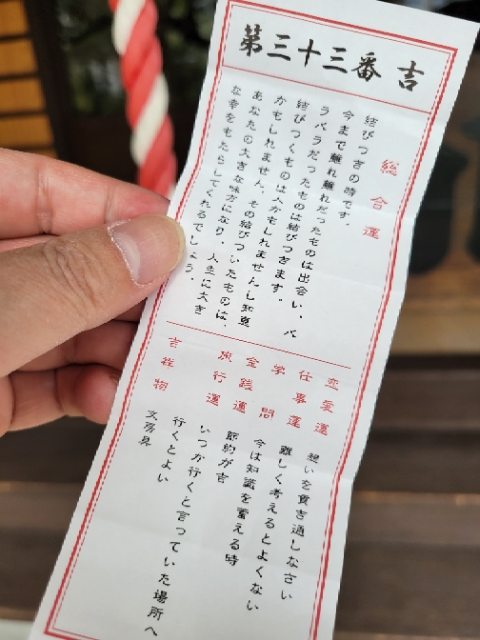 第三十三番 吉
総合運
結びつきの時です。
今まで離れ離れだったものは出会い、バ
ラバラだったものは結びつきます。
結びつくものは人かもしれませんし知恵
かもしれません。その結びついたものは、
あなたの大きな味方になり、人生に大き
な幸をもたらしてくれるでしょう。
恋愛運 想いを貫き通しなさい
仕事運 難しく考えるとよくない
学問 今は知識を蓄える時
金銭運 節約が吉
旅行運 いつか行くと言っていた場所へ
行くとよい
吉祥物 文房具